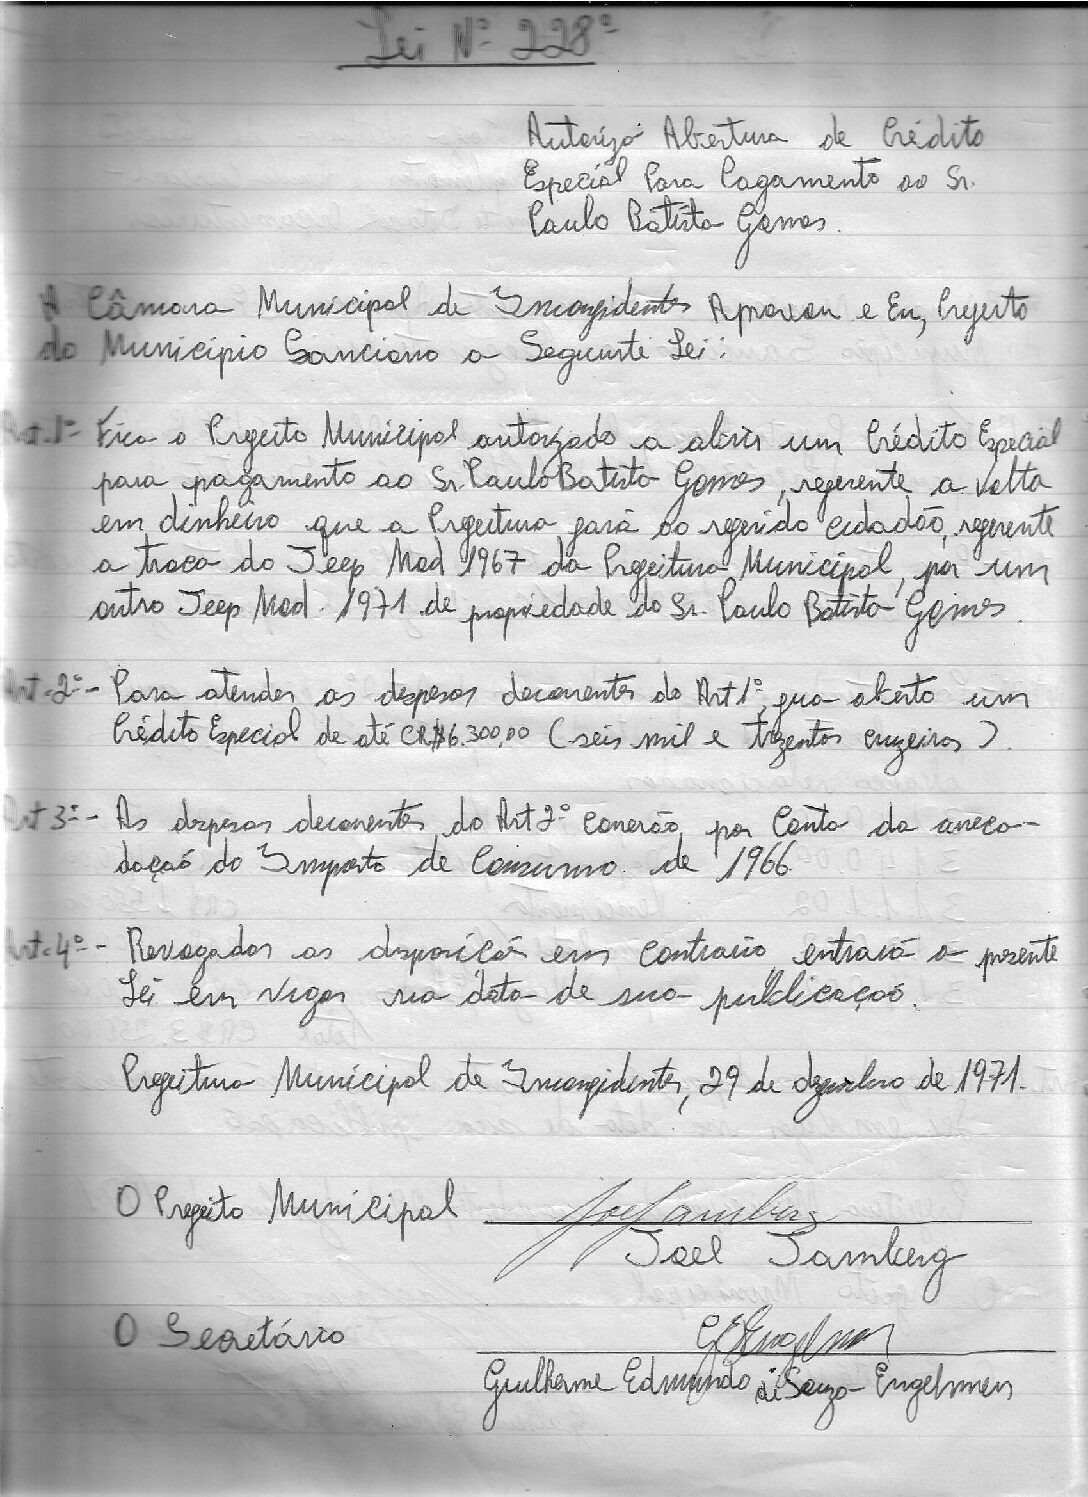 Lei Nº 228º
Autoriza Abertura de Crédito
Especial Para Pagamento ao Sr.
Paulo Batista Gomes.
A Câmara Municipal de Inconfidentes Aprovou e Eu, Prefeito
do Município Sanciono a Seguinte Lei:
Art. 1º- Fica o Prefeito Municipal autorizado a abrir um Crédito Especial
para pagamento ao Sr. Paulo Batista Gomes, referente a volta
em dinheiro que a Prefeitura fará ao referido cidadão, referente
a troca do Jeep Mod 1967 da Prefeitura Municipal, por um
outro Jeep Mod. 1971 de propriedade do Sr. Paulo Batista Gomes.
Art-2º- Para atender as despesas decorrentes do Art 1º, fica aberto um
Crédito Especial de até CR$6.300,00 (seis mil e trezentos cruzeiros).
Art 3º- As despesas decorrentes do Art 2º Correrão por Conta da arreca-
dação do Imposto de Consumo de 1966
Art-4º- Revogadas as disposição em contrário entrará a presente
Lei em vigor na data de sua publicação.
Prefeitura Municipal de Inconfidentes, 29 de dezembro de 1971.
O Prefeito Municipal
Joel Jamberg
O Secretário
Guilherme Edmundo de Souza Engelmen